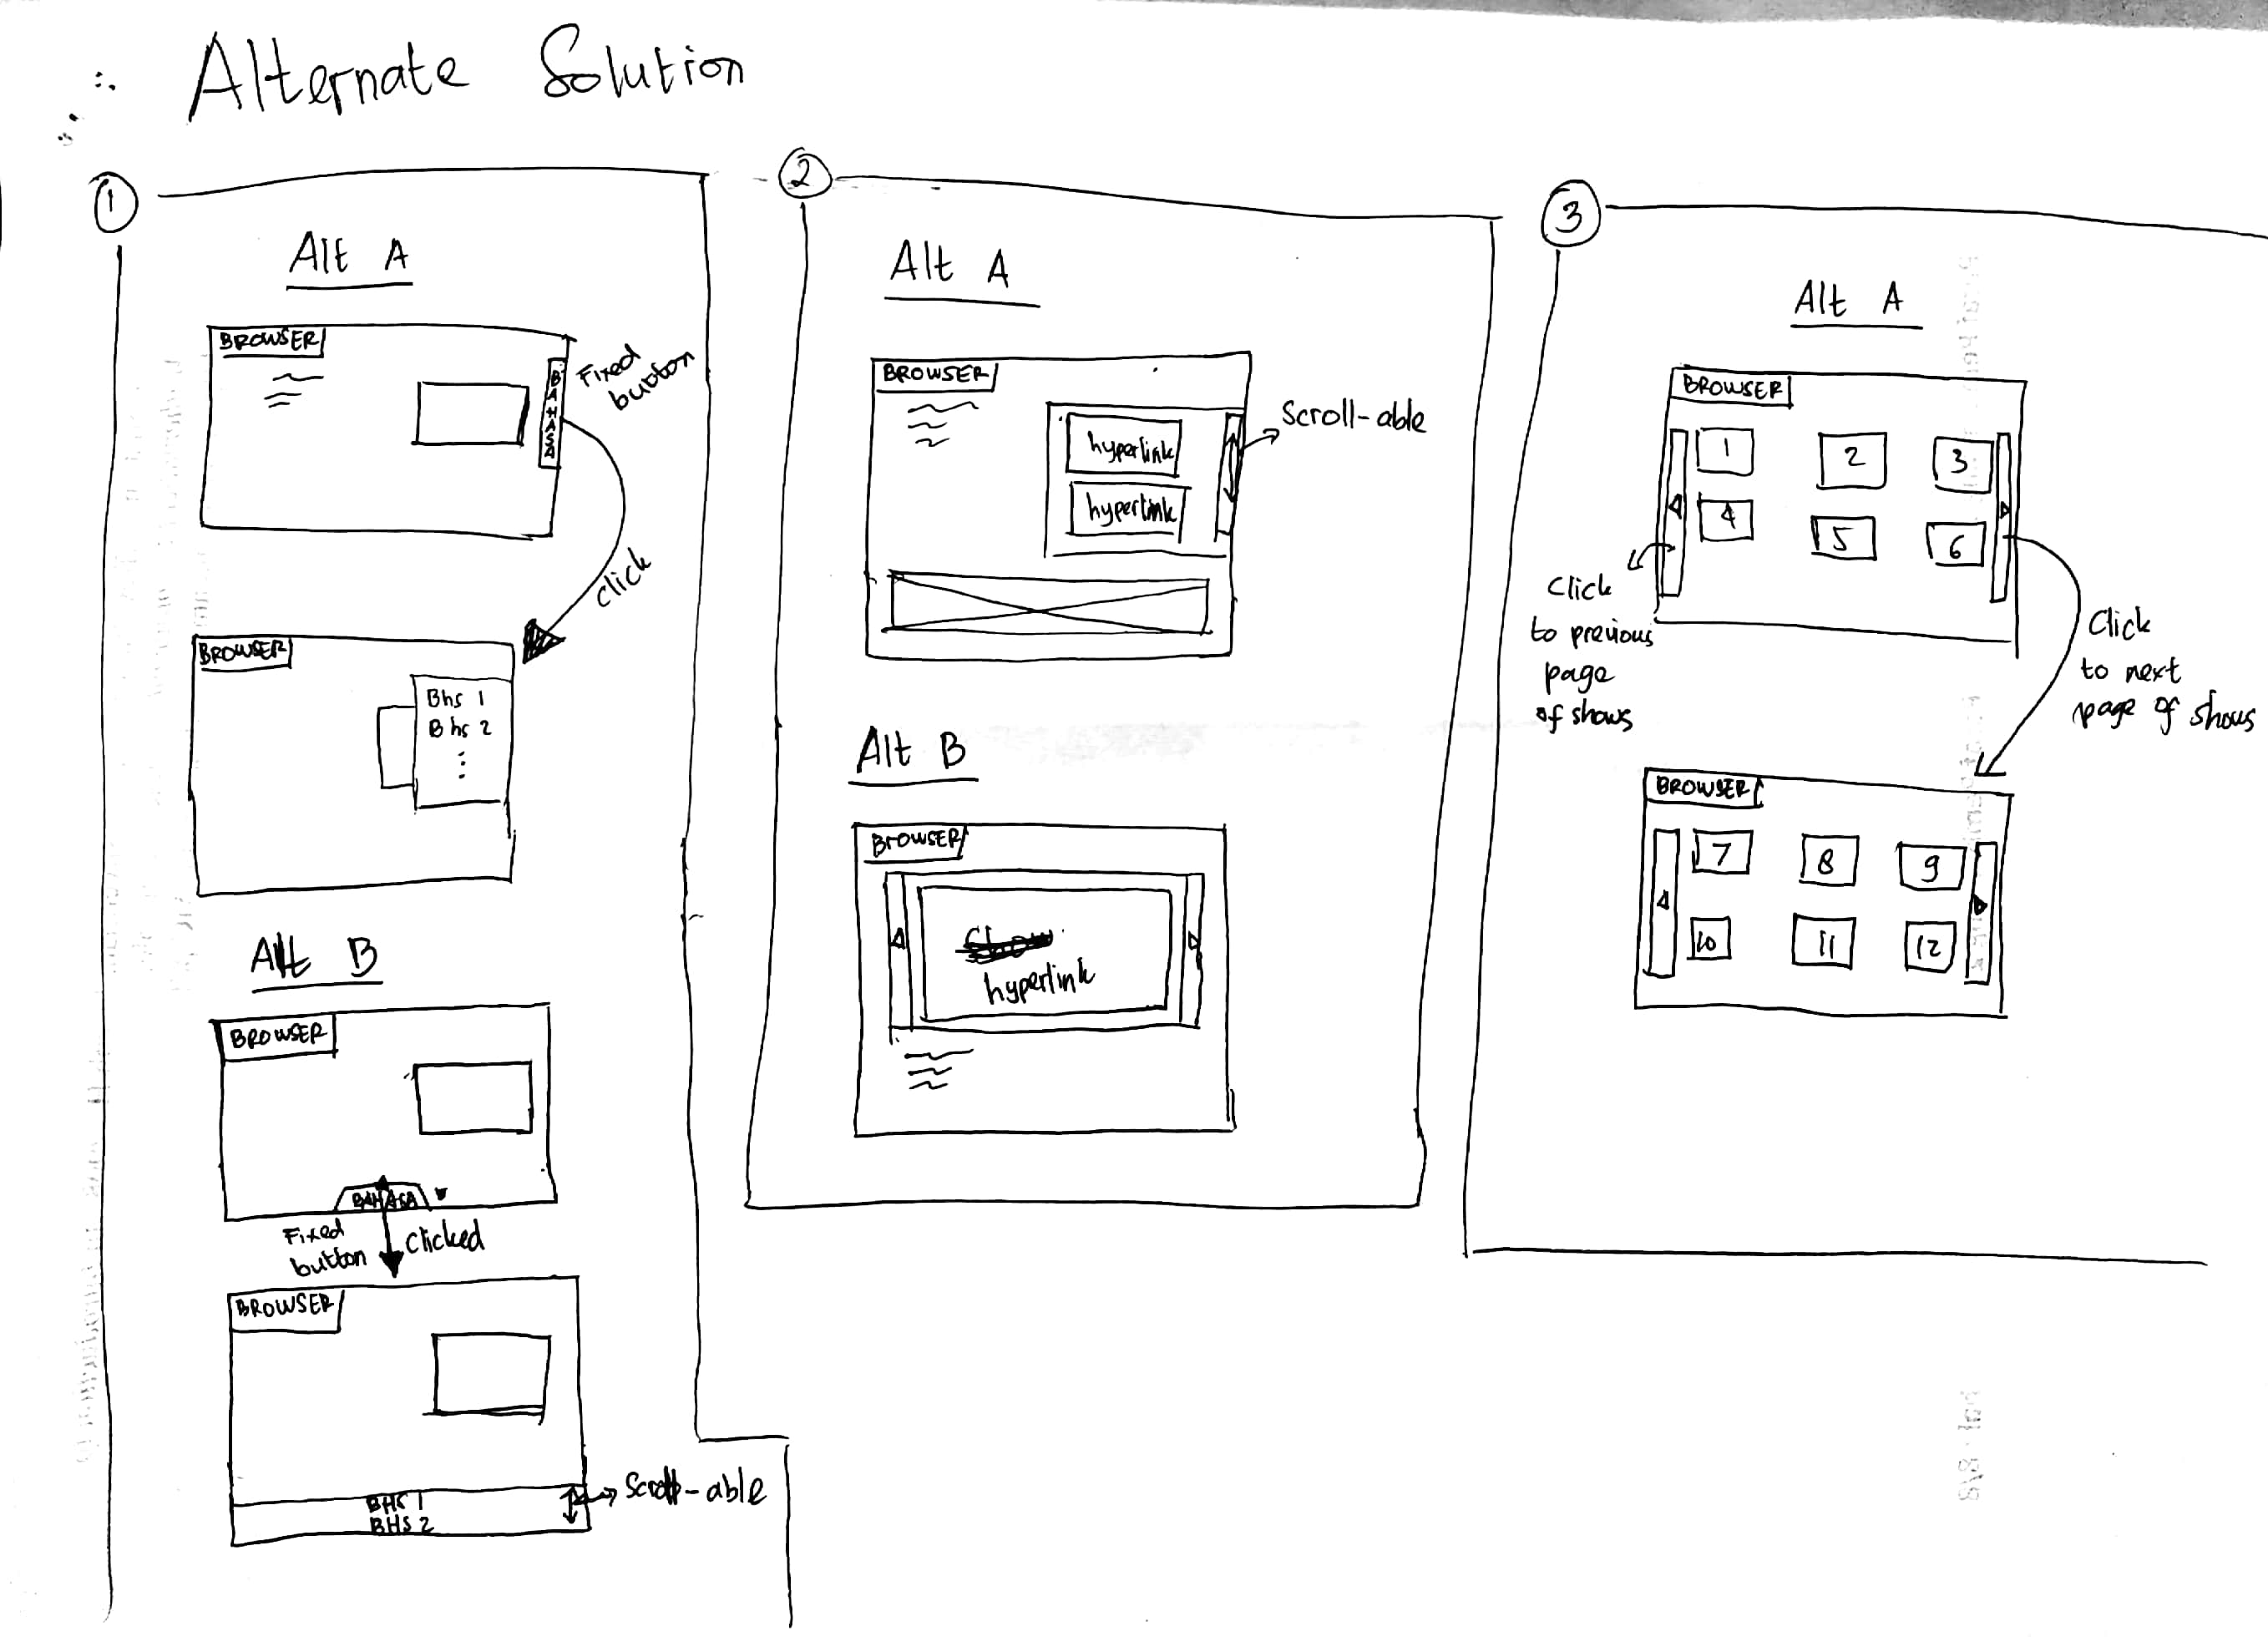 Alternate Solution
1
Alt A
BROWSER
BAHASA
Fixed
button
click
BROWSER
Bhs 1
Bhs 2
Alt B
BROWSER
BAHASA
Fixed
button
clicked
BROWSER
BHS 1
BHS 2
Scroll-able
2
Alt A
BROWSER
hyperlink
hyperlink
Scroll-able
Alt B
BROWSER
hyperlink
3
Alt A
BROWSER
1 2 3
4 5 6
Click
to previous
page
of shows
Click
to next
page of shows
BROWSER
7 8 9
10 11 12